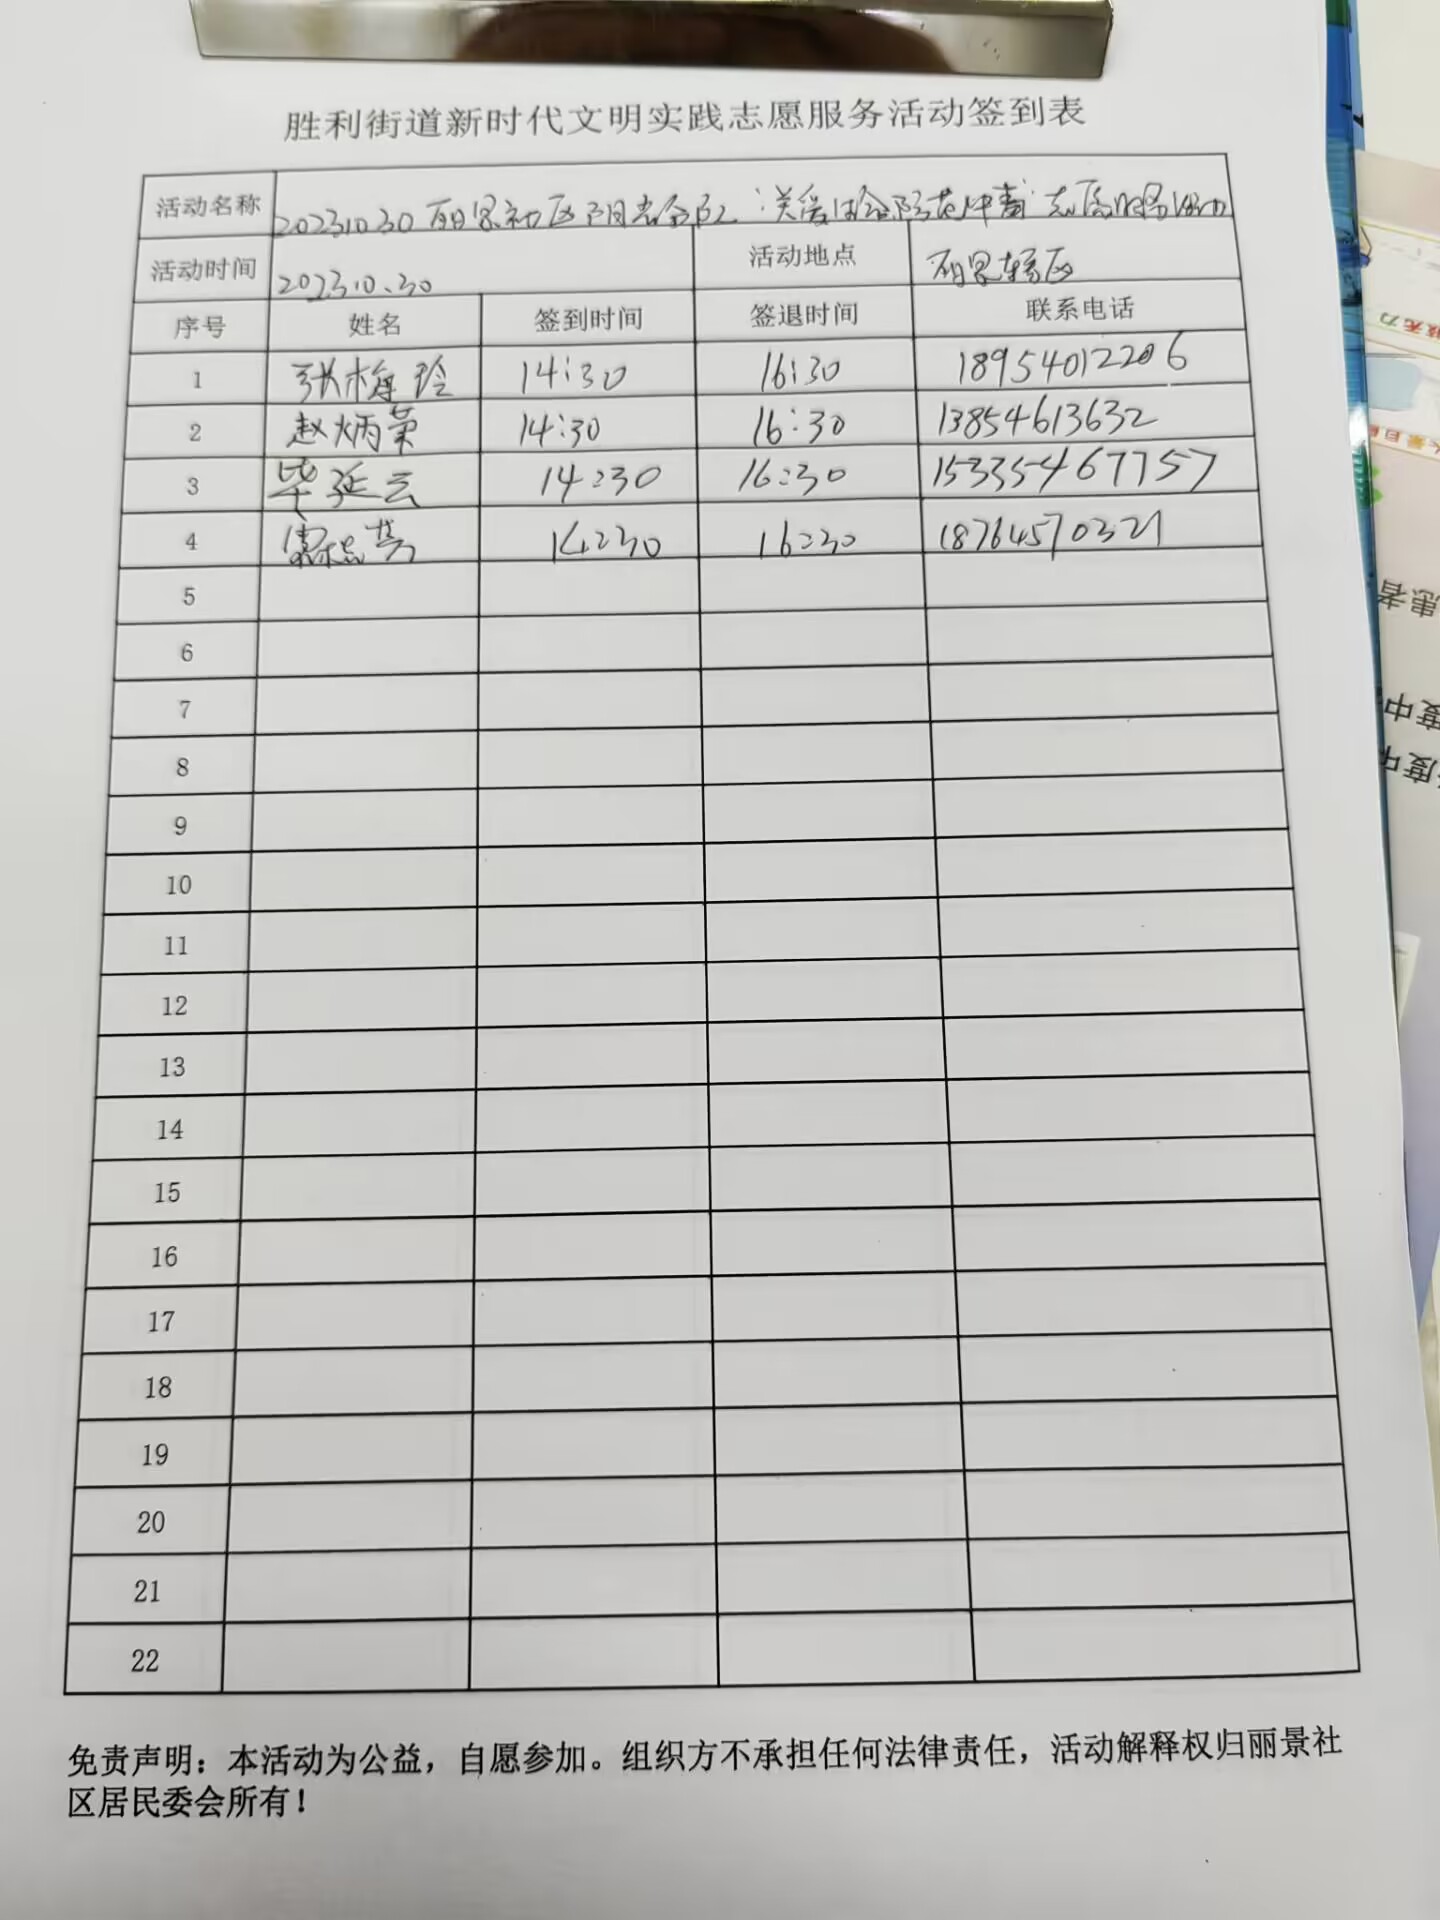 胜利街道新时代文明实践志愿服务活动签到表
活动名称 20231030 丽景社区阳光会队"关爱 防范中毒"志愿服务活动
活动时间 202310.30 活动地点 丽景辖区
序号 姓名 签到时间 签退时间 联系电话
1 张梅玲 14:30 16:30 18954012206
2 赵炳荣 14:30 16:30 13854613632
3 毕延云 14:30 16:30 15335467757
4 14:30 16:30 18764570321
5
6
7
8
9
10
11
12
13
14
15
16
17
18
19
20
21
22
免责声明：本活动为公益，自愿参加。组织方不承担任何法律责任，活动解释权归丽景社
区居民委会所有！
患者
度中
度中